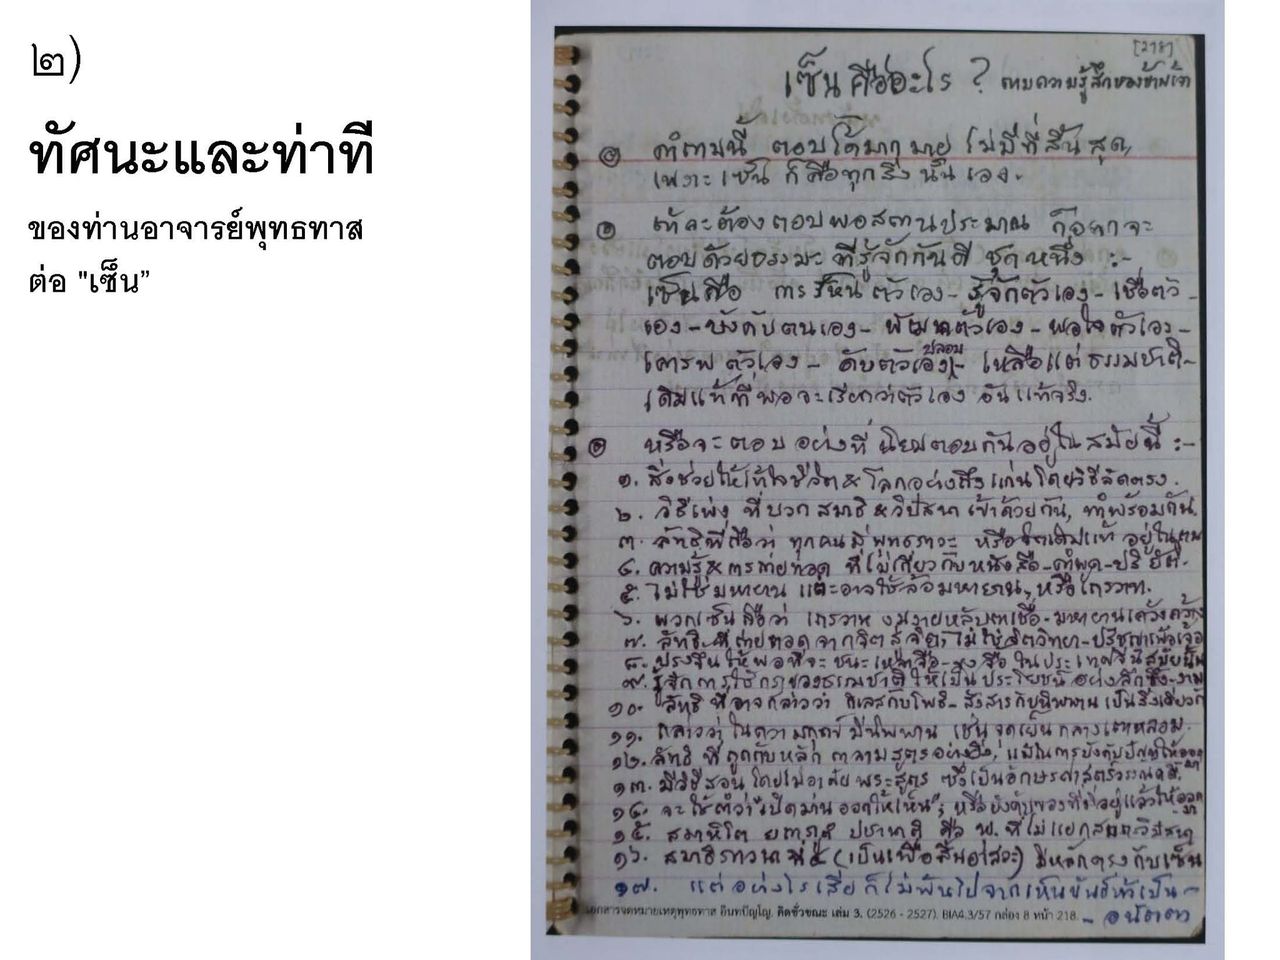 ๒)
ทัศนะและท่าที
ของท่านอาจารย์พุทธทาส
ต่อ "เซ็น”
[218]
เซ็นคืออะไร ? ตามความรู้สึกของข้าพเจ้า
คำถามนี้ ตอบได้มากมาย ไม่มีที่สิ้นสุด,
เพราะ เซ็น ก็คือทุกสิ่ง นั่นเอง.
ถ้าจะต้องตอบพอสถานประมาณ ก็อยากจะ
ตอบด้วยธรรมะ ที่รู้จักกันดี ชุดหนึ่ง :-
เซ็นคือ การเห็นตัวเอง - รู้จักตัวเอง - เชื่อตัว
เอง - บังคับตนเอง - พัฒนาตัวเอง - พอใจตัวเอง -
เคารพตัวเอง - ดับตัวเองปลอม - เหลือแต่ธรรมชาติ-
เดิมแท้ที่พอจะเรียกว่าตัวเอง อันแท้จริง.
หรือจะตอบอย่างที่นิยมตอบกันอยู่ในสมัยนี้ :-
๑. สิ่งช่วยให้เข้าใจชีวิต & โลกอย่างถึงแก่นโดยวิธีลัดตรง.
๒. วิธีเพ่ง ที่บวกสมาธิ & วิปัสนาเข้าด้วยกัน, ทำพร้อมกัน.
๓. ลัทธิที่ถือว่า ทุกคนมีพุทธภาวะ หรือจิตเดิมแท้ อยู่ในตน
๔. ความรู้ & การถ่ายทอด ที่ไม่เกี่ยวกับหนังสือ-คำพูด-ปริยัติ.
๕. ไม่ใช่มหายาน แต่อาจใช้ล้อมหายาน, หรือเถรวาท.
๖. พวกเซ็นถือว่า เถรวาท งมงายหลับตาเชื่อ - มหายานเคว้งคว้าง
๗. ลัทธิที่ถ่ายทอดจากจิตสู่จิต, ไม่ใช่จิตวิทยา-ปรัชญาเพ้อเจ้อ
๘. ปรุงขึ้นให้พอที่จะชนะเหลาจื๊อ-ขงจื๊อ ในประเทศจีนสมัยนั้น
๙. รู้จักการใช้กฎของธรรมชาติ ให้เป็นประโยชน์อย่างลึกซึ้ง-งาม
๑๐. ลัทธิ ที่อาจกล่าวว่า กิเลสกับโพธิ - สังสารกับนิพพาน เป็นสิ่งเดียวกัน
๑๑. กล่าวว่าในความทุกข์ มีนิพพาน เช่นจุดเย็นกลางเตาหลอม.
๑๒. ลัทธิ ที่ถูกกับหลัก กาลามสูตรอย่างยิ่ง, แม้ในการบังคับปัญหาให้ออกมา
๑๓. มีวิธีสอนโดยไม่อาศัยพระสูตร ซึ่งเป็นอักษรศาสตร์วรรณคดี.
๑๔. จะใช้คำว่า "เปิดม่านออกให้เห็น"; หรือบังคับของที่มีอยู่แล้วให้ออกมา
๑๕. สมาหิโต ยถาภูตํ ปชานาติ คือ พ. ที่ไม่แยกสมถะวิปัสนา
๑๖. สมาธิภาวนาที่ ๔ (เป็นเพื่อสิ้นอาสวะ) มีหลักตรงกับเซ็น
๑๗. แต่อย่างไรเสีย ก็ไม่พ้นไปจากเห็นขันธ์ห้าเป็น -
- อนัตตา
เอกสารจดหมายเหตุพุทธทาส อินทปัญโญ. คิดชั่วขณะ เล่ม 3. (2526 - 2527). BIA4.3/57 กล่อง 8 หน้า 218.